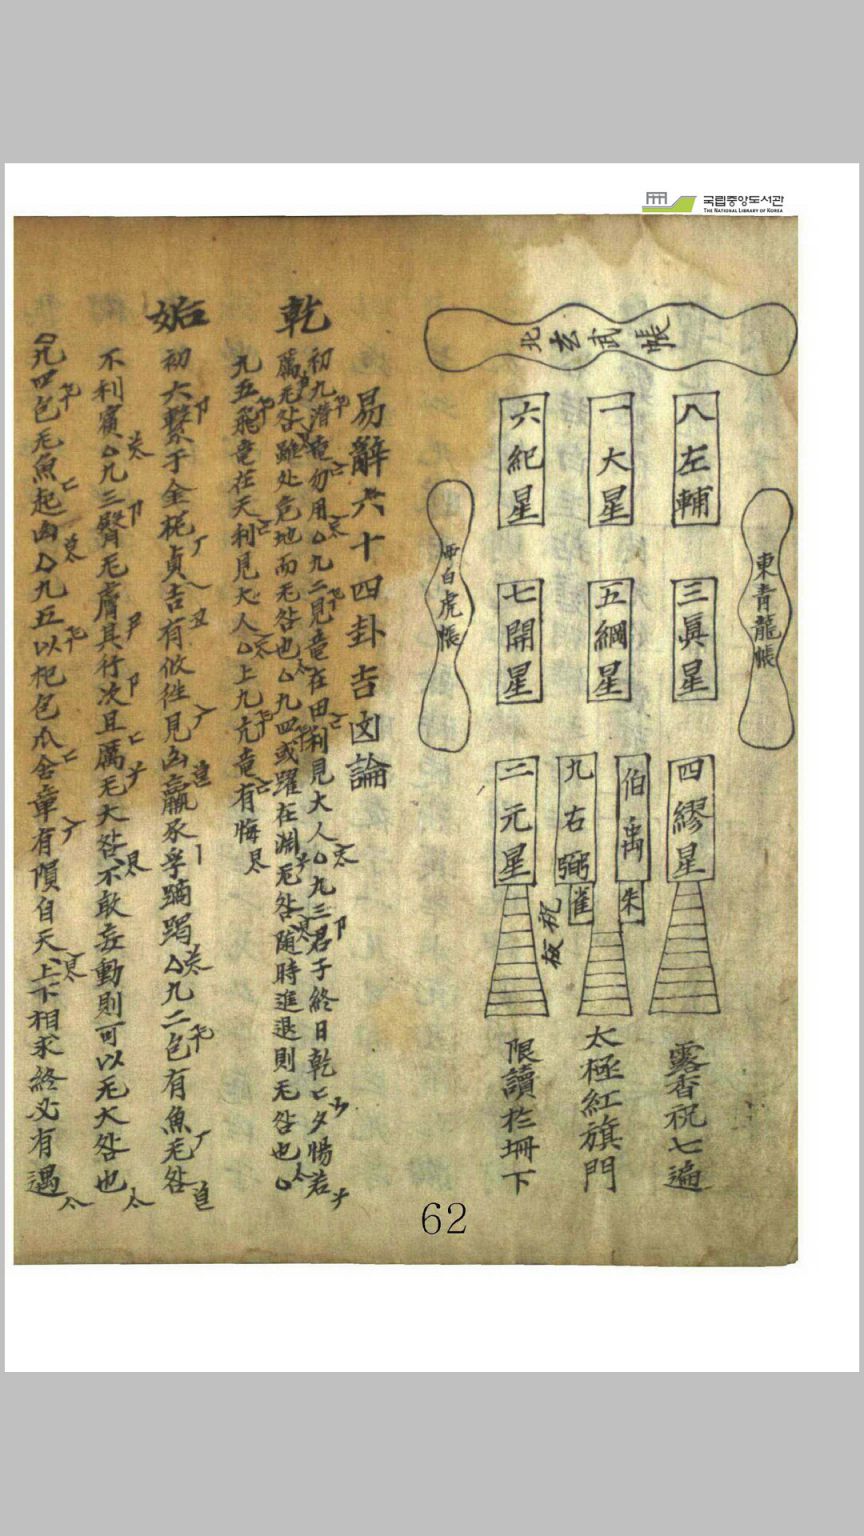 국립중앙도서관
THE NATIONAL LIBRARY OF KOREA
北玄武帳
東青龍帳
白虎帳
八左輔
一大星
六紀星
三眞星
五綱星
七開星
四繆星
伯禹
朱
九右弼
雀
二元星
祝板
露香祝七遍
太極紅旗門
限讀於壇下
易辭六十四卦吉凶論
乾
初九潛竜勿用△九二見竜在田利見大人△九三君子終日乾〻夕惕若
厲无咎雖处危地而无咎也△九四或躍在淵无咎随時進退則无咎也△
九五飛竜在天利見大人△上九亢竜有悔
姤
初六繫于金柅貞吉有攸徃見凶羸豕孚蹢躅△九二包有魚无咎
不利賓△九三臀无膚其行次且厲无大咎不敢妄動則可以无大咎也
△九四包无魚起凶△九五以杞包瓜含章有隕自天上下相求終必有遇
62